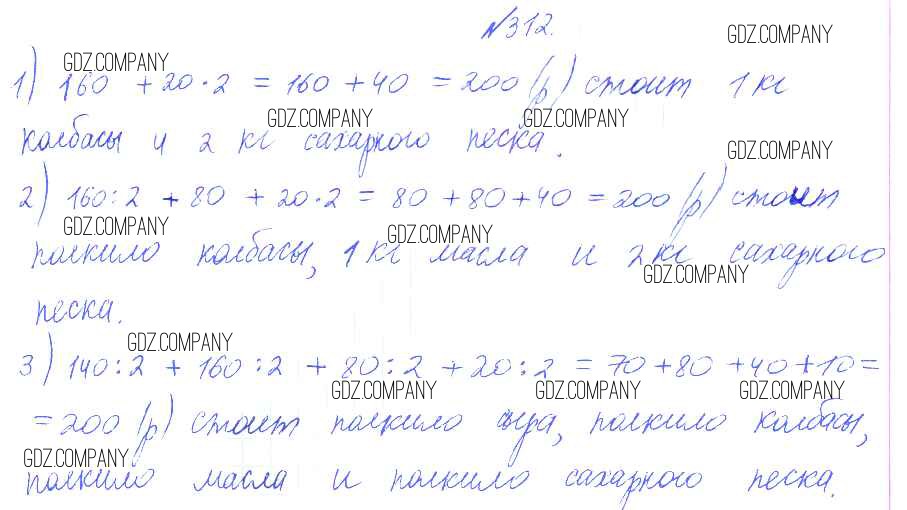 №312.
1) 160 + 20·2 = 160 + 40 = 200 (р) стоит 1 кг
колбасы и 2 кг сахарного песка.
2) 160:2 + 80 + 20·2 = 80 + 80 + 40 = 200 (р) стоит
полкило колбасы, 1 кг масла и 2 кг сахарного
песка.
3) 140:2 + 160:2 + 80:2 + 20:2 = 70 + 80 + 40 + 10 =
= 200 (р) стоит полкило сыра, полкило колбасы,
полкило масла и полкило сахарного песка.
GDZ.COMPANY
GDZ.COMPANY
GDZ.COMPANY
GDZ.COMPANY
GDZ.COMPANY
GDZ.COMPANY
GDZ.COMPANY
GDZ.COMPANY
GDZ.COMPANY
GDZ.COMPANY
GDZ.COMPANY
GDZ.COMPANY
GDZ.COMPANY